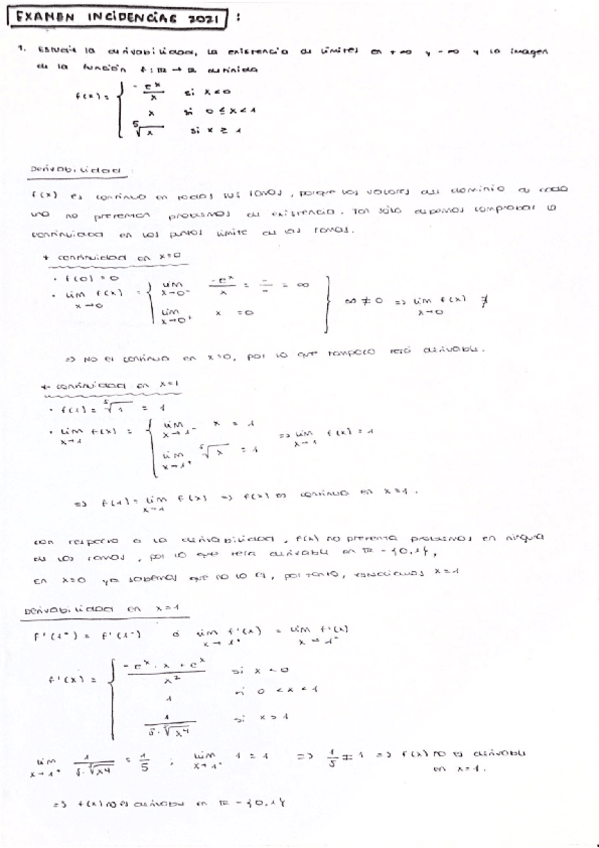 EXAMEN INCIDENCIAS 2021 :
1. Estudie la derivabilidad, la existencia de límites en +∞ y -∞ y la imagen
de la función f: ℝ → ℝ definida
f(x) = { -e^x/x si x<0
x si 0 ≤ x < 1
⁵√x si x ≥ 1
Derivabilidad:
f(x) es continua en todas sus ramas, porque los valores del dominio de cada
una no presentan problemas de existencia. Tan sólo debemos comprobar la
continuidad en los puntos límite de las ramas.
* continuidad en x=0
· f(0) = 0
· lim x→0 f(x) = { lim x→0⁻ -e^x/x = -/- = ∞
lim x→0⁺ x = 0 } ∞ ≠ 0 => lim x→0 f(x) ∄
=> No es continua en x=0, por lo que tampoco será derivable.
* continuidad en x=1
· f(1) = ⁵√1 = 1
· lim x→1 f(x) = { lim x→1⁻ x = 1
lim x→1⁺ ⁵√x = 1 => lim x→1 f(x) = 1
=> f(1) = lim x→1 f(x) => f(x) es continua en x=1.
con respecto a la derivabilidad, f(x) no presenta problemas en ninguna
de las ramas, por lo que será derivable en ℝ - {0,1},
en x=0 ya sabemos que no lo es, por tanto, estudiamos x=1
Derivabilidad en x=1
f'(1⁺) = f'(1⁻) ó lim x→1⁺ f'(x) = lim x→1⁻ f'(x)
f'(x) = { -e^x · x + e^x / x² si x < 0
1 si 0 < x < 1
1 / 5·⁵√x⁴ si x > 1
lim x→1⁺ 1 / 5·⁵√x⁴ = 1/5 ; lim x→1⁻ 1 = 1 => 1/5 ≠ 1 => f(x) no es derivable
en x=1.
=> f(x) no es derivable en ℝ - {0,1}